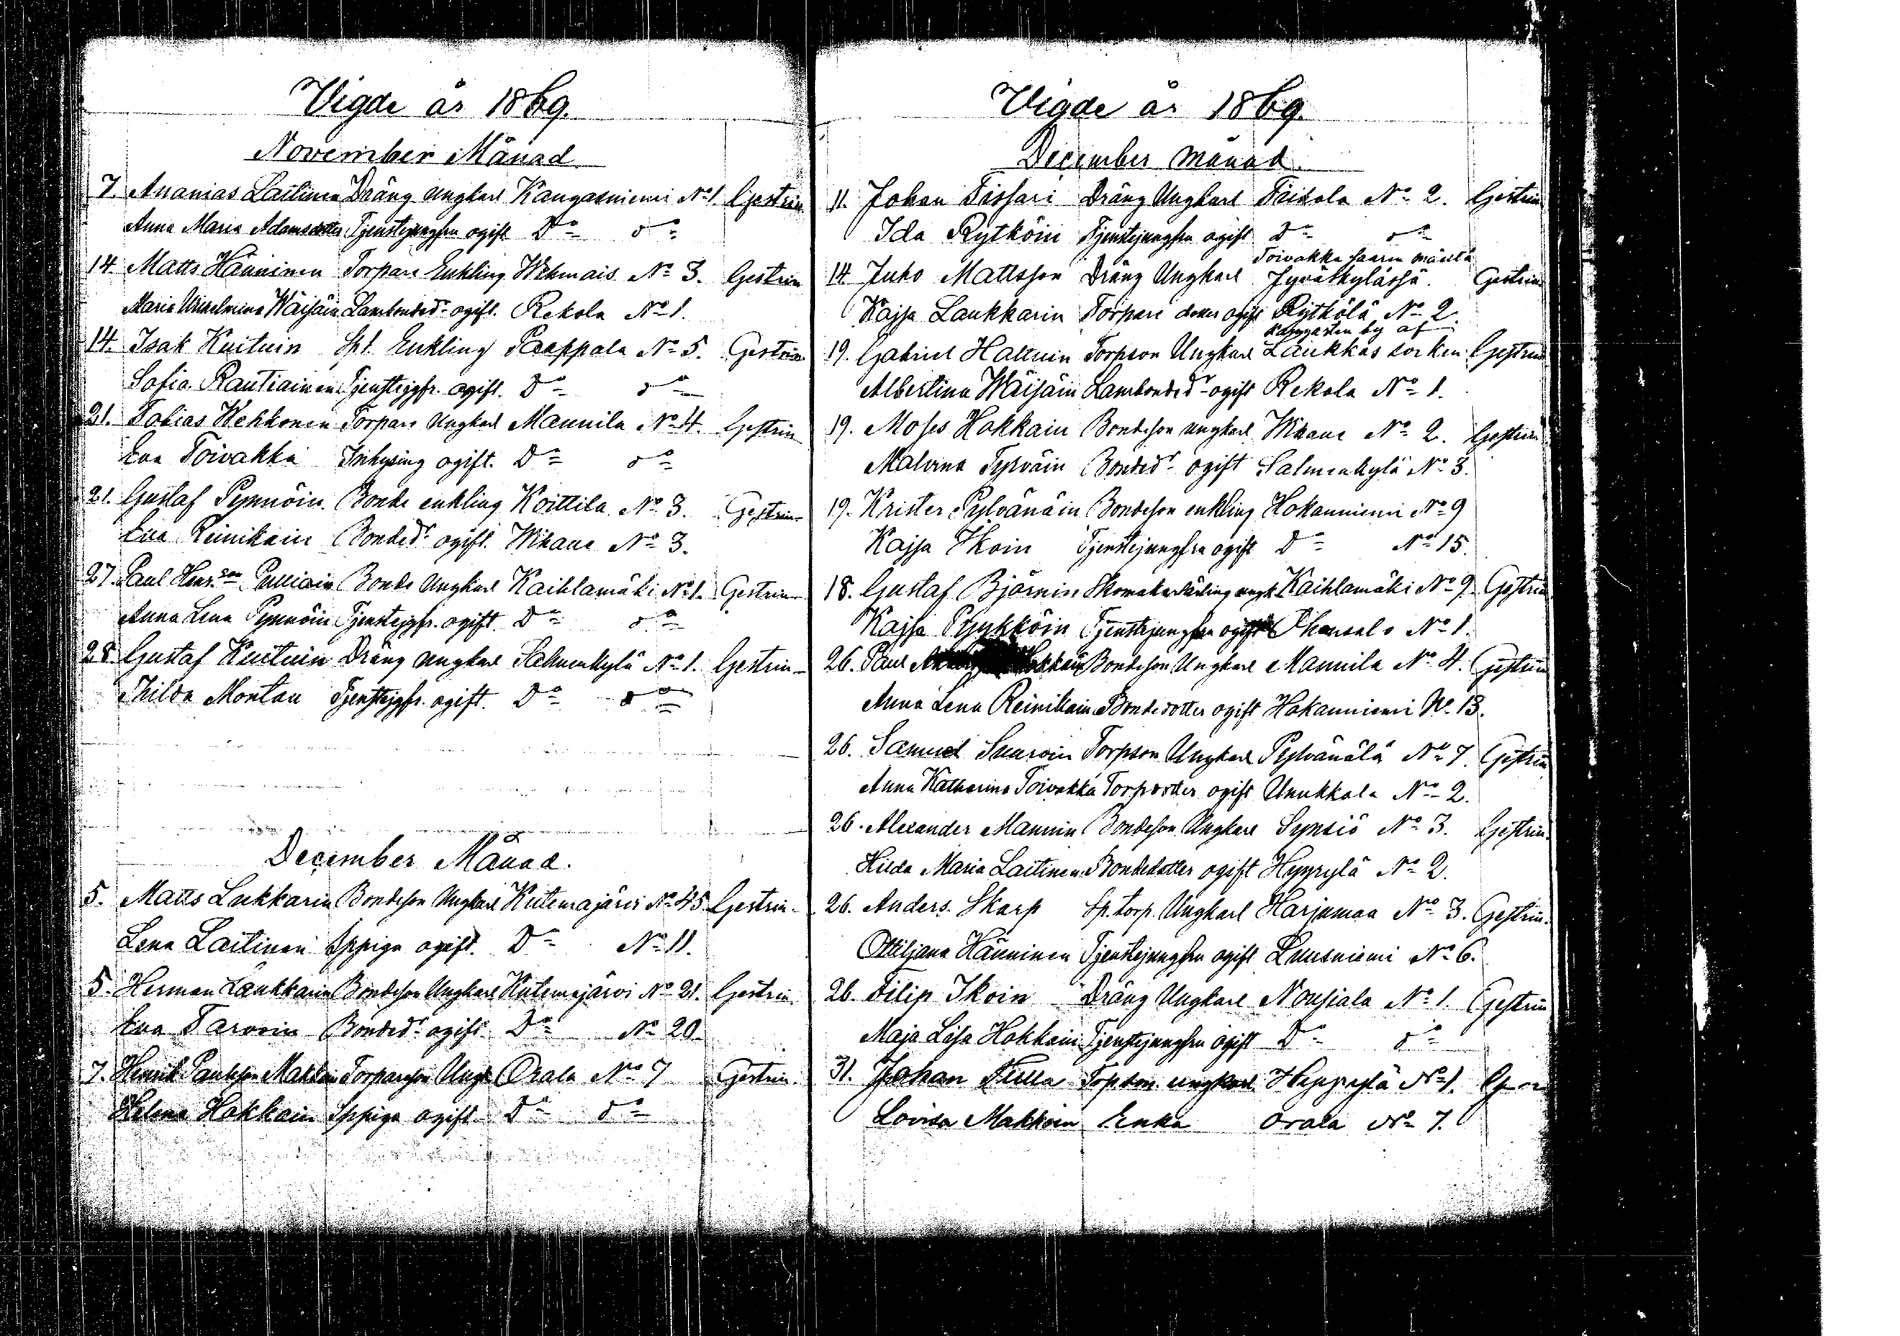 Vigde år 1869.
November Månad
7. Ananias Laitinen Dräng ungkarl Kangasniemi No 1. Gestrin
Anna Maria Adamsdotter Tjenstejungfru ogift Do do
14. Matts Hänninen Torpare Enkling Wehmais No 3. Gestrin
Maria Wilhelmina Wäisäin Lambonded. ogift. Rekola No 1.
14. Isak Kuituin Spl. Enkling Paappala No 5. Gestrin
Sofia Rautiainen Tjenstejgfr. ogift. Do do
21. Tobias Wehkonen Torpare Ungkarl Mannila No 4. Gestrin
Eva Toivakka Inhysing ogift. Do do
21. Gustaf Pynnöin Bonde enkling Koittila No 3. Gestrin
Eva Reinikain Bonded. ogift. Wikane No 3.
27. Paul Henr.son Pulliain Bonde Ungkarl Kaihlamäki No 1. Gestrin
Anna Lena Pynnöin Tjenstejgfr. ogift Do do
28. Gustaf Kuituin Dräng ungkarl Salmenkylä No 1. Gestrin
Thilda Montan Tjenstejgfr. ogift. Do do
December Månad.
5. Matts Lukkarin Bondeson Ungkarl Kutemajärvi No 45 Gestrin
Lena Laitinen Sppiga ogift. Do No 11.
5. Herman Laukkarin Bondeson Ungkarl Kutemajärvi No 21. Gestrin
Eva Tarvoin Bonded. ogift Do No 20
7. Henrik Paulsson Makkoin Torpareson Ungk Orala No 7 Gestrin
Helena Hokkain Sppiga ogift Do do
Vigde år 1869.
December månad
11. Johan Tissari Dräng Ungkarl Taikola No 2. Gestrin
Ida Rytköin Tjenstejungfru ogift Do do
Toivakka Saaren maalla
14 Juho Mattsson Dräng Ungkarl Jyväskylässä. Gestrin
Kajsa Laukkarin Torpare dotter ogift Rytkölä No 2.
by af
19. Gabriel Hattuin Torpson Ungkarl Laukkas socken Gestrin
Albertina Wäisäin Lambonded. ogift Rekola No 1.
19. Moses Hokkain Bondeson ungkarl Wikane No 2. Gestrin
Malvina Tyrväin Bonded. ogift Salmenkylä No 3.
19. Krister Pylvänäin Bondeson enkling Hokanniemi No 9
Kajsa Ikoin Tjenstejungfru ogift Do No 15.
18. Gustaf Björnin Skomakarlärling ungk Kaihlamäki No 9 Gestrin
Kajsa Pyykköin Tjenstejungfru ogift No 1.
26. Paul Hokkain Bondeson Ungkarl Mannila No 4. Gestrin
Anna Lena Reinikain Bondedotter ogift Hokanniemi No 13.
26. Samuel Suuroin Torpson Ungkarl Pylvänälä No 7. Gestrin
Anna Katharina Toivakka Torpardotter ogift Unnukkala No 2.
26. Alexander Mannin Bondeson Ungkarl Synsiö No 3. Gestrin.
Hilda Maria Laitinen Bondedotter ogift Hyyrylä No 2.
26. Anders Skarp Sp. torp. Ungkarl Harjumaa No 3. Gestrin.
Ottiljana Hänninen Tjenstejungfru ogift Luusniemi No 6.
26. Filip Ikoin Dräng Ungkarl Nousiala No 1. Gestrin
Maja Lisa Hokkain Tjenstejungfru ogift Do do
31. Johan Kulla Torpson ungkarl Hyyrylä No 1.
Lovisa Makkoin Enka Orala No 7.